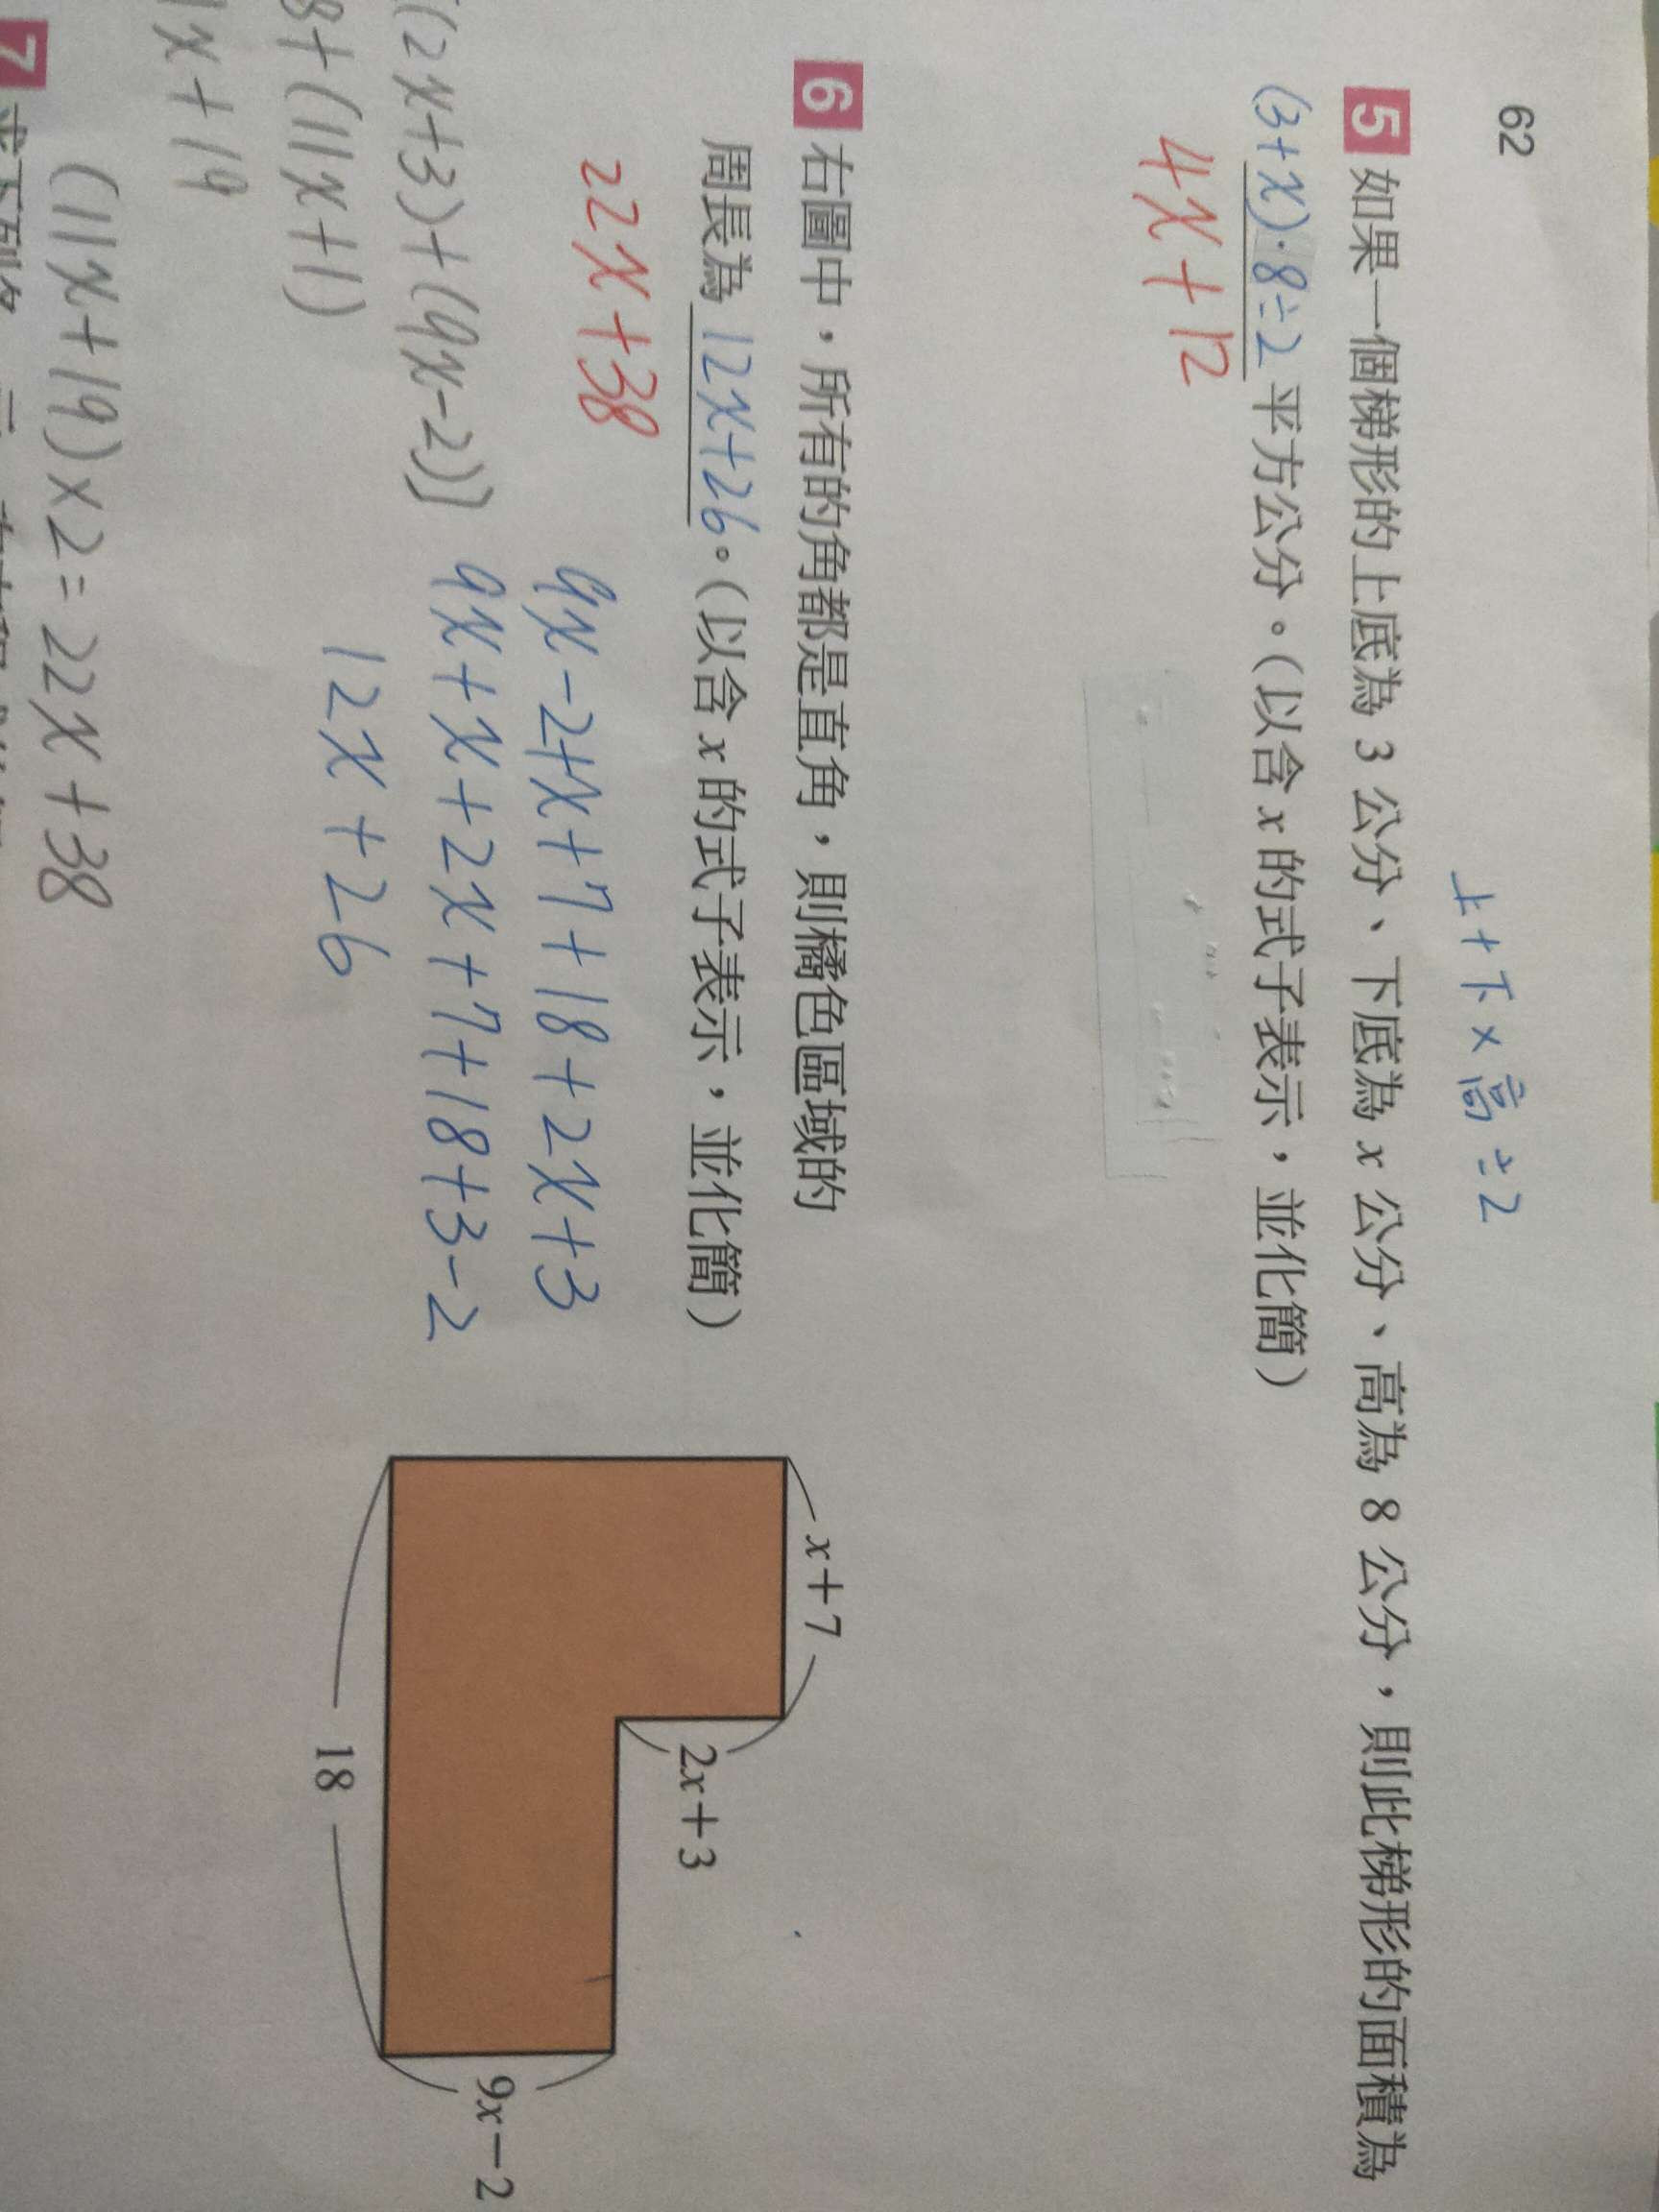 62
上+下×高÷2
5 如果一個梯形的上底為 3 公分、下底為 x 公分、高為 8 公分,則此梯形的面積為
(3+x)·8÷2 平方公分。(以含 x 的式子表示,並化簡)
4x+12
6 右圖中,所有的角都是直角,則橘色區域的
周長為 12x+26。(以含 x 的式子表示,並化簡)
22x+38
9x-2+x+7+18+2x+3
9x+x+2x+7+18+3-2
12x+26
(2x+3)+(9x-2)]
8+(11x+1)
1x+19
(11x+19)×2=22x+38
x+7
2x+3
18
9x-2
7